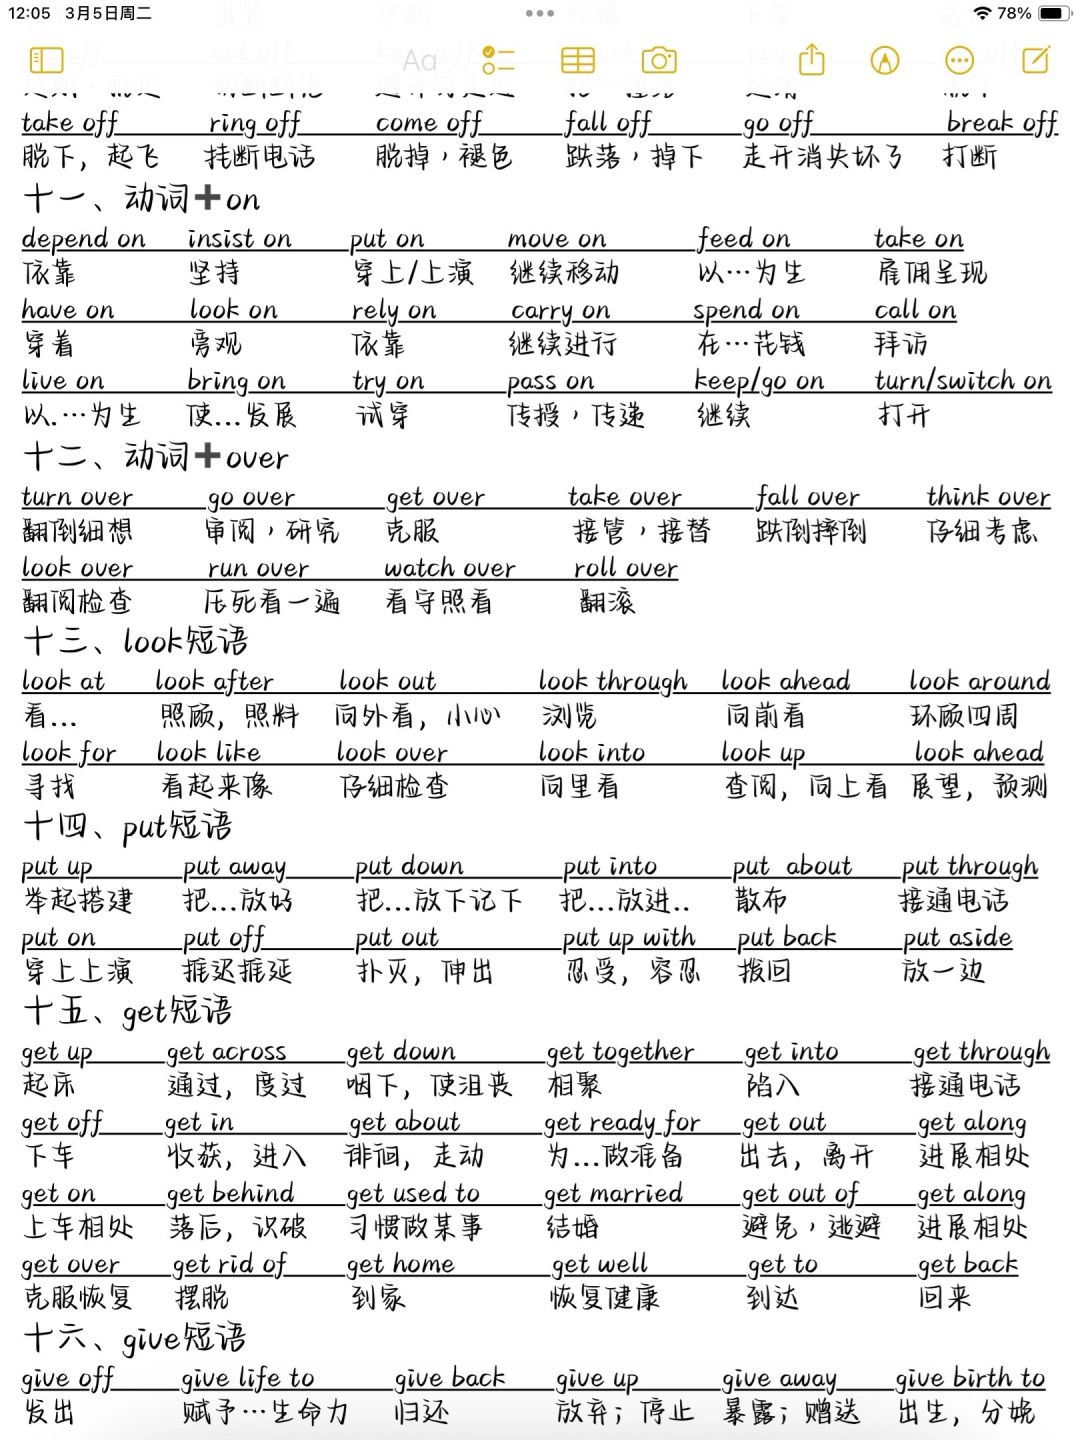 12:05 3月5日周二 78%
Aa
take off ring off come off fall off go off break off
脱下，起飞 挂断电话 脱掉，褪色 跌落，掉下 走开消失坏了 打断
十一、动词➕on
depend on insist on put on move on feed on take on
依靠 坚持 穿上/上演 继续移动 以…为生 雇佣呈现
have on look on rely on carry on spend on call on
穿着 旁观 依靠 继续进行 在…花钱 拜访
live on bring on try on pass on keep/go on turn/switch on
以.…为生 使...发展 试穿 传授，传递 继续 打开
十二、动词➕over
turn over go over get over take over fall over think over
翻倒细想 审阅，研究 克服 接管，接替 跌倒摔倒 仔细考虑
look over run over watch over roll over
翻阅检查 压死看一遍 看守照看 翻滚
十三、look短语
look at look after look out look through look ahead look around
看... 照顾，照料 向外看，小心 浏览 向前看 环顾四周
look for look like look over look into look up look ahead
寻找 看起来像 仔细检查 向里看 查阅，向上看 展望，预测
十四、put短语
put up put away put down put into put about put through
举起搭建 把...放好 把...放下记下 把...放进.. 散布 接通电话
put on put off put out put up with put back put aside
穿上上演 推迟推延 扑灭，伸出 忍受，容忍 拨回 放一边
十五、get短语
get up get across get down get together get into get through
起床 通过，度过 咽下，使沮丧 相聚 陷入 接通电话
get off get in get about get ready for get out get along
下车 收获，进入 徘徊，走动 为...做准备 出去，离开 进展相处
get on get behind get used to get married get out of get along
上车相处 落后，识破 习惯做某事 结婚 避免，逃避 进展相处
get over get rid of get home get well get to get back
克服恢复 摆脱 到家 恢复健康 到达 回来
十六、give短语
give off give life to give back give up give away give birth to
发出 赋予…生命力 归还 放弃；停止 暴露；赠送 出生，分娩